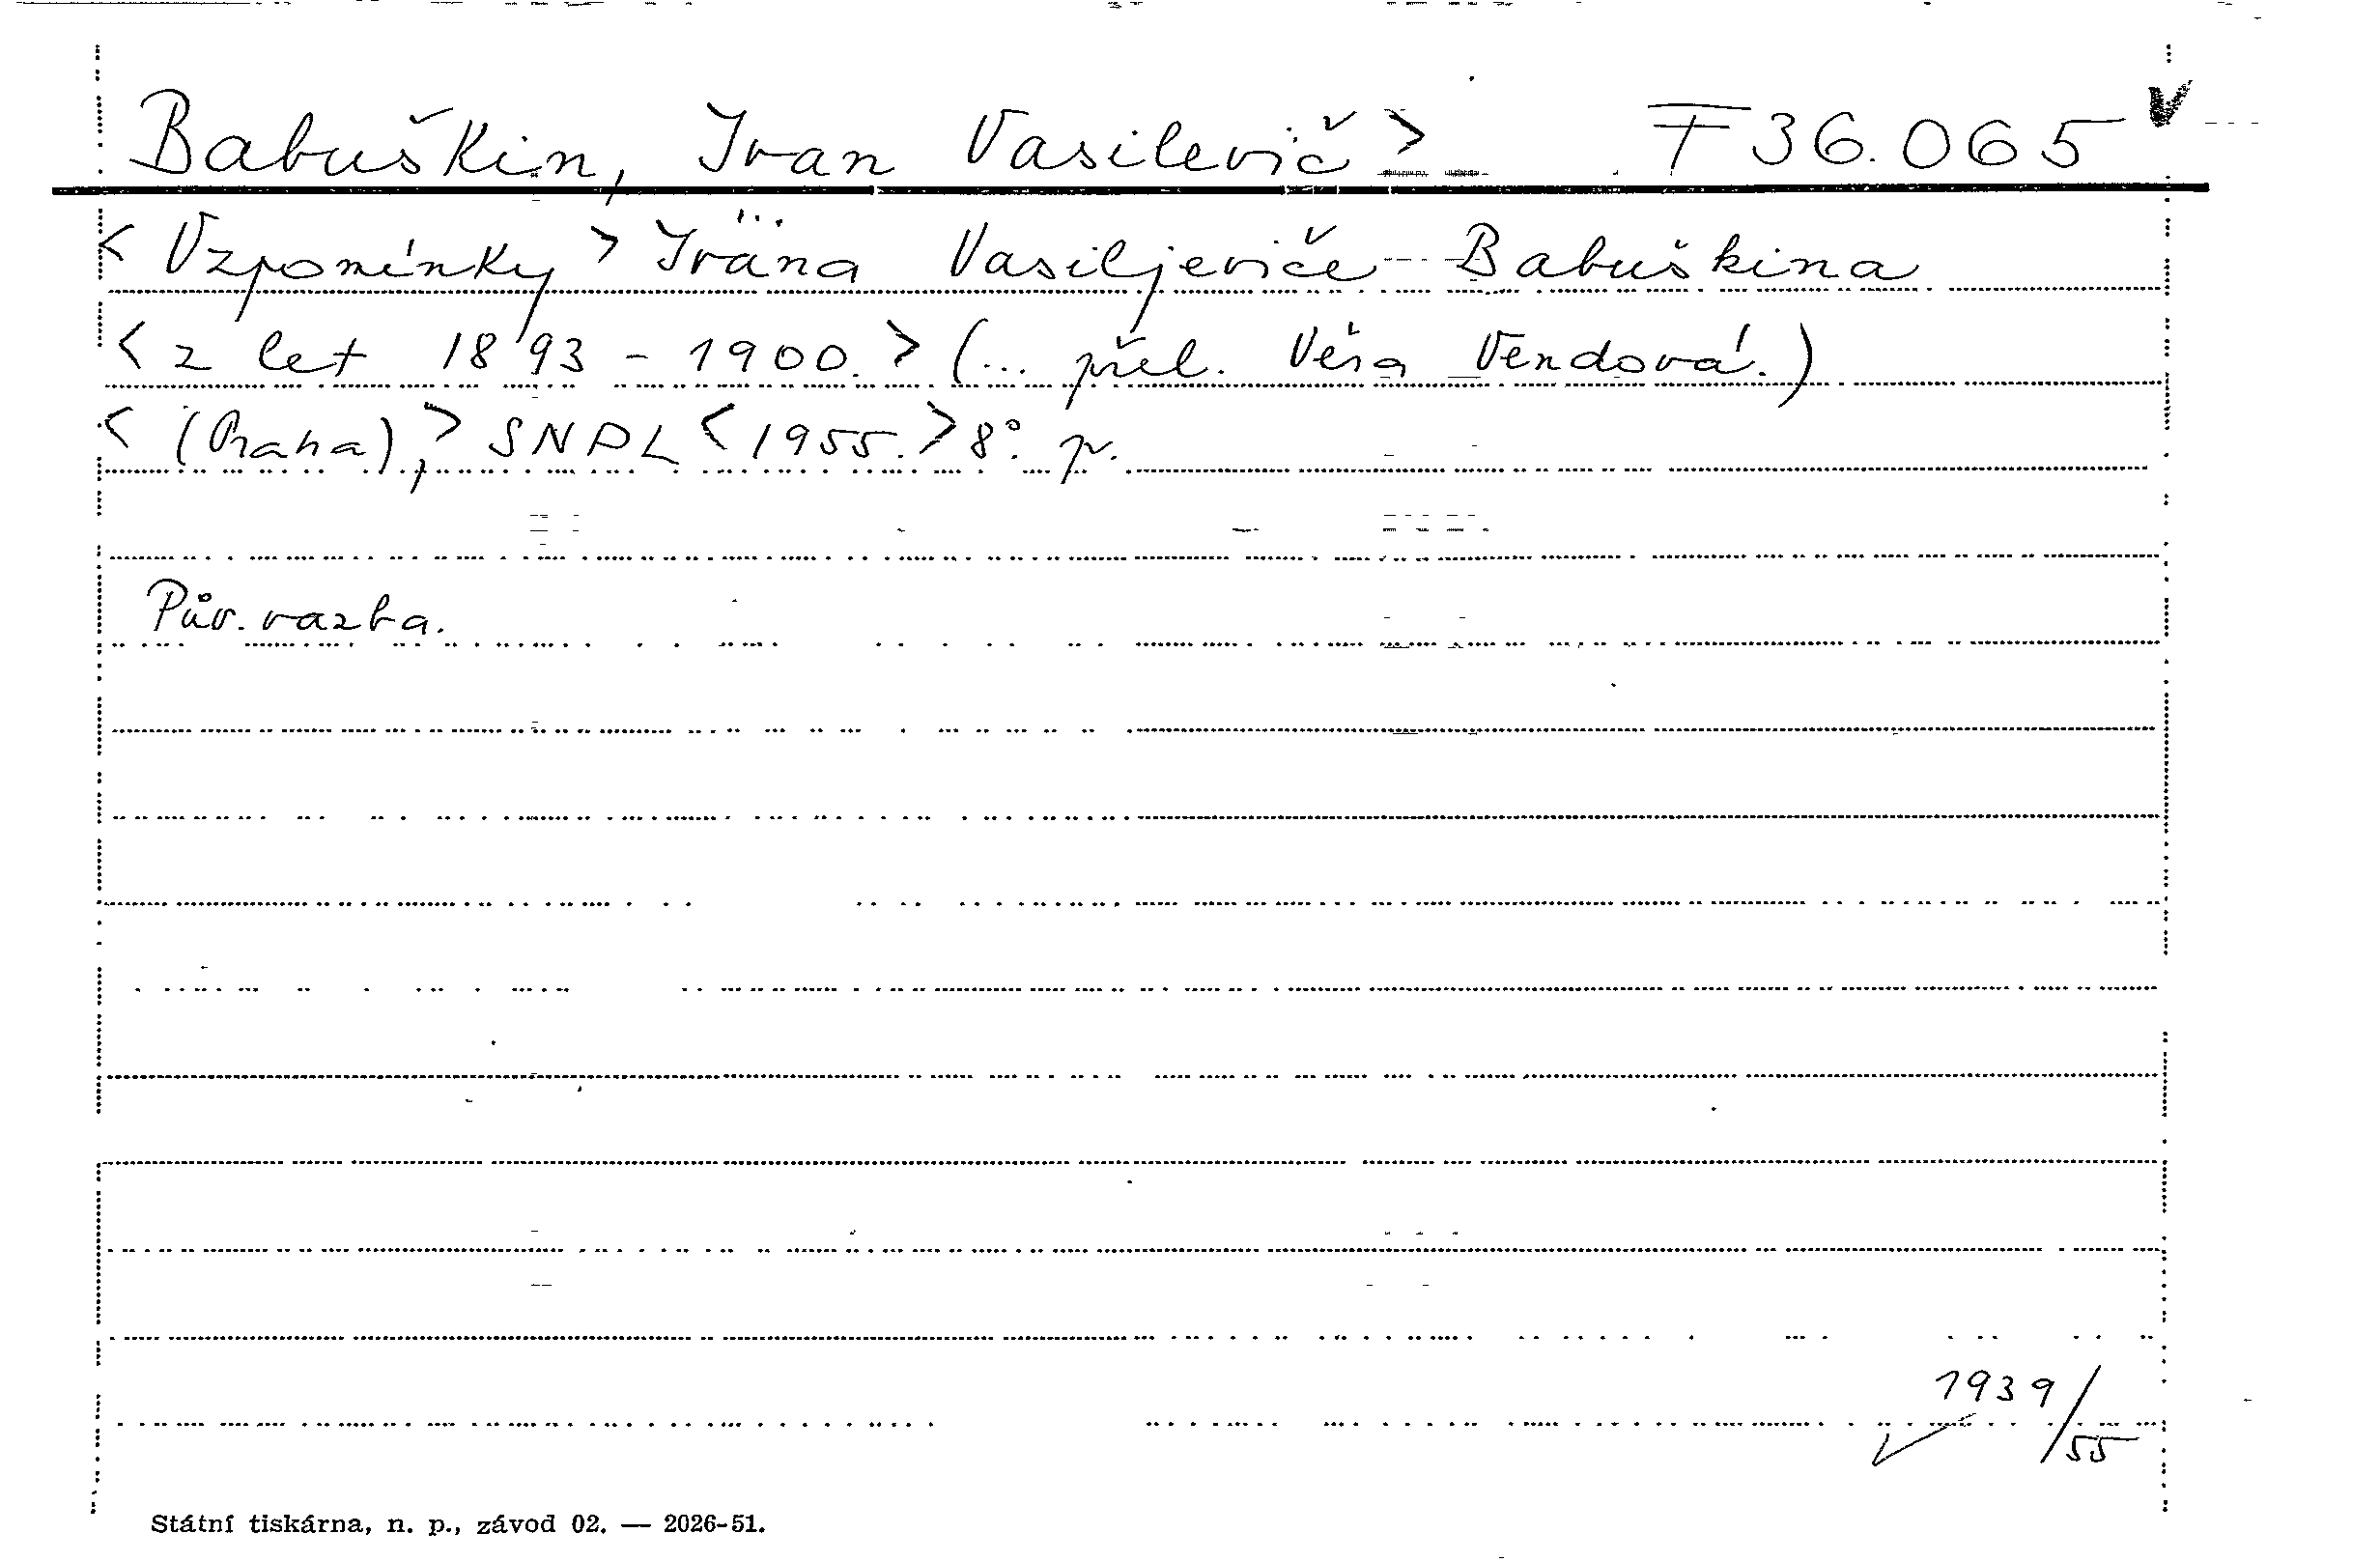 Babuškin, Ivan Vasilevič > F 36.065
< Vzpomínky > Ivana Vasiljeviče Babuškina
< z let 1893 - 1900. > (... přel. Věra Vendová.)
< (Praha), > SNPL < 1955. > 8°. p.
Pův. vazba.
1939/55
Státní tiskárna, n. p., závod 02. — 2026-51.